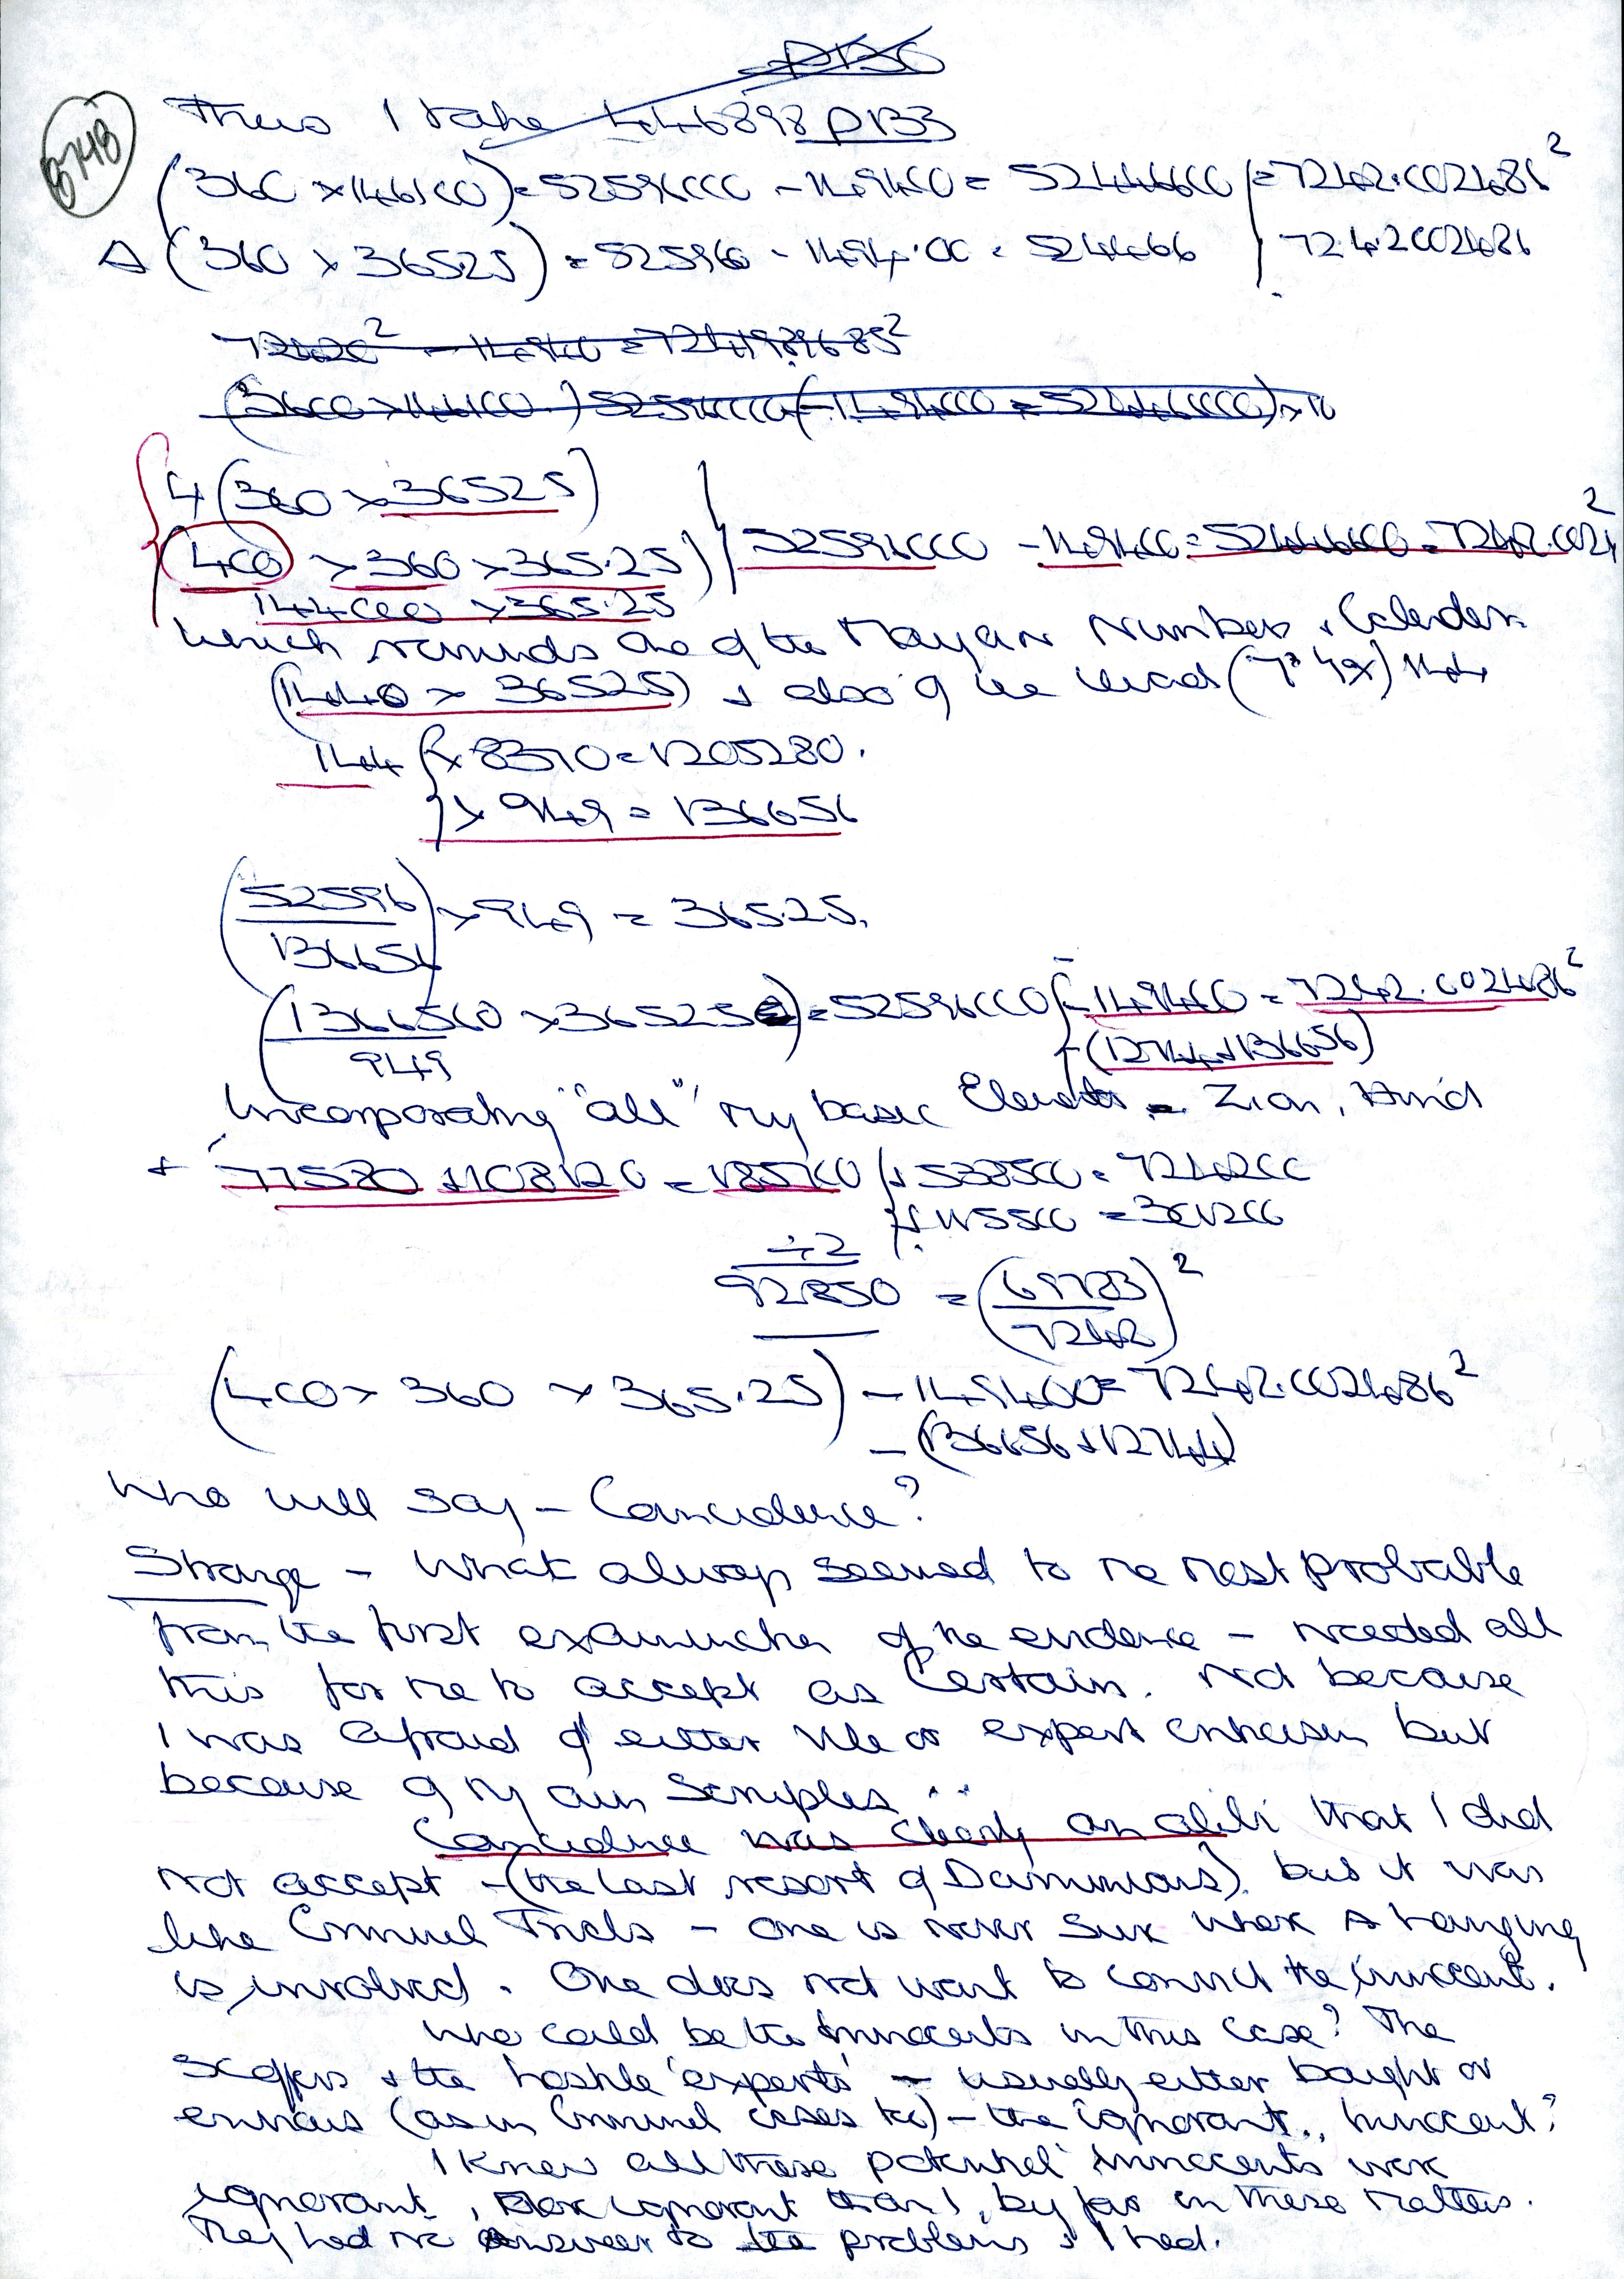 P136
874B
Thus I take 446898 P133
(360 × 146100) = 52596000 - 149400 = 52446600 } = 7242.002486²
& (360 × 36525) = 525960 - 1494.00 = 524466 } 724.2002486
72420² - 149400 = 7241989685²
(3600 × 146100) 52596000 (-1494000 = 524466000) × 10
4(360 × 36525)
(400 × 360 × 365.25) } 52596000 - 149400 = 52446600 = 7242.0024²
144000 × 365.25
which reminds one of the Mayan Numbers & Calendar
(1440 × 36525) & also of the
144 { × 8370 = 1205280.
} × 949 = 136656
(52596/136656) × 949 = 365.25.
(1366560/949 × 36525) = 52596000 { - 149400 = 7242.002486²
-(12744+136656)
Incorporating "all" my basic Elements = Zion,
+ 77580 + 108120 = 185700 { + 538500 = 724200
{ + 115500 = 301200
÷2
92850 = (69783/7242)²
(400 × 360 × 365.25) - 149400 = 7242.002486²
-(136656+12744)
Who will say - Coincidence?
Strange - What always seemed to me most probable
from the first examination of the evidence - needed all
this for me to accept as Certain. Not because
I was afraid of either or expert criticism but
because of my own Scruples ..
Coincidence was clearly an alibi that I did
not accept - (the last resort of ) but it was
like Criminal Trials - one is never sure when a hanging
is involved. One does not want to convict the innocent.
Who could be the Innocents in this case? The
scoffers & the hostile 'experts' - usually either bought or
envious (as in Criminal cases too) - the ignorant.. Innocent?
I knew all these potential 'innocents' were
ignorant, more ignorant than I, by far in these matters.
They had no answer to the problems & I had.